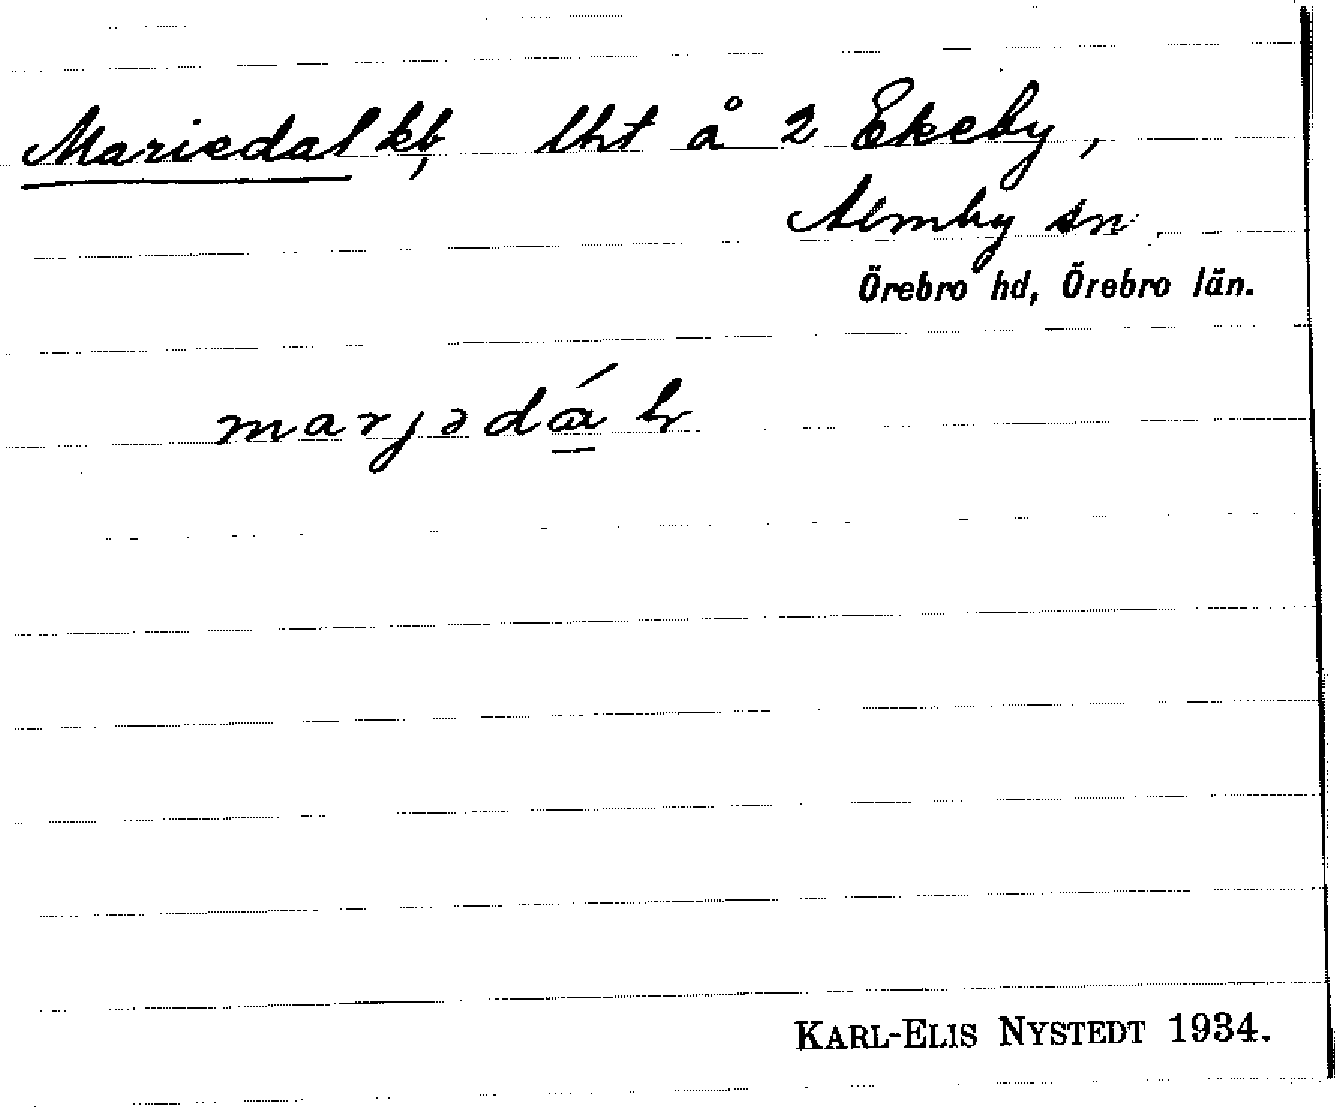 Mariedal kb, lht å 2 Ekeby,
Almby sn
Örebro hd, Örebro län.
marjədɑ́ L
KARL-ELIS NYSTEDT 1934.